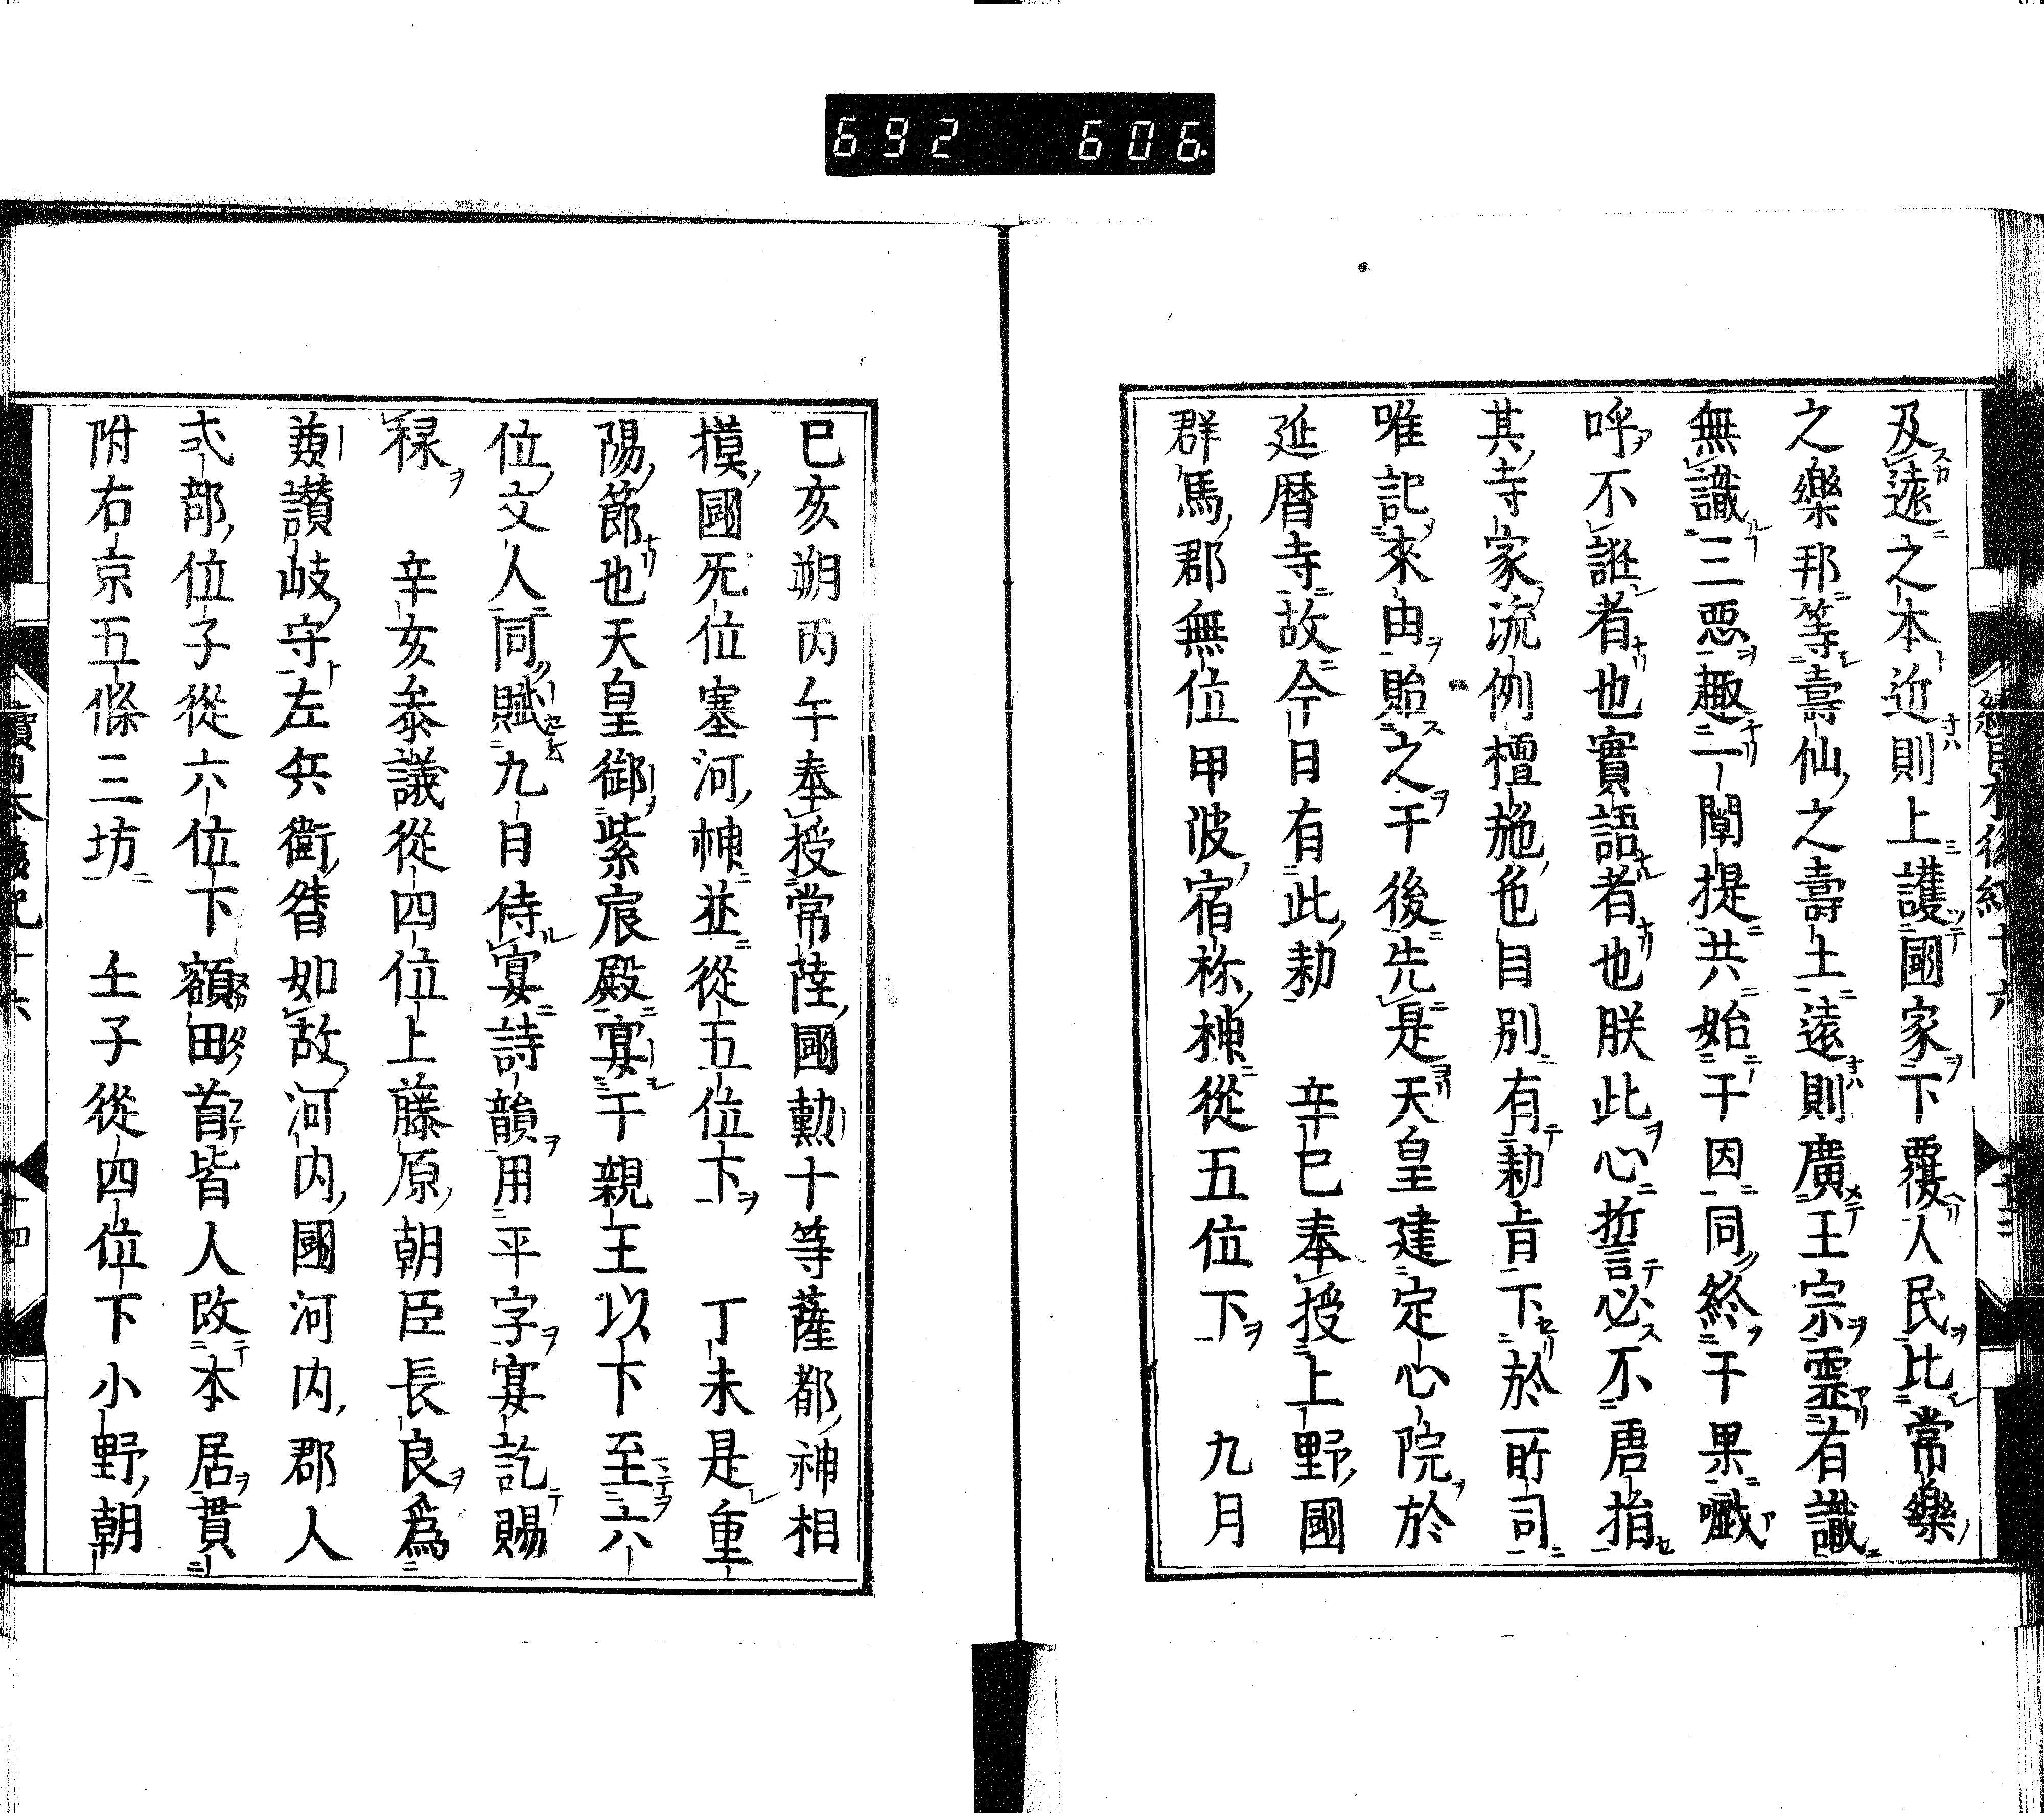 692 606
及遠之本近則上護國家下覆人民比常樂
之樂邦等壽仙之壽土遠則廣王宗霊有識
無識三惡趣一闡提共始于因同終于果嚱
呼不誑者也實語者也朕此心誓必不唐捐
其寺家流例檀施色目別有勅旨下於所司
唯記來由貽之于後先是天皇建定心院於
延暦寺故今日有此勅　辛巳奉授上野國
群馬郡無位甲波宿祢神從五位下　九月
己亥朔丙午奉授常陸國勳十等薩都神相
摸國无位塞河神並從五位下　丁未是重
陽節也天皇御紫宸殿宴于親王以下至六
位文人同賦九日侍宴詩韻用平字宴訖賜
祿　辛亥叅議從四位上藤原朝臣長良爲
兼讃岐守左兵衛督如故河内國河内郡人
式部位子從六位下額田首皆人改本居貫
附右京五條三坊　壬子從四位下小野朝